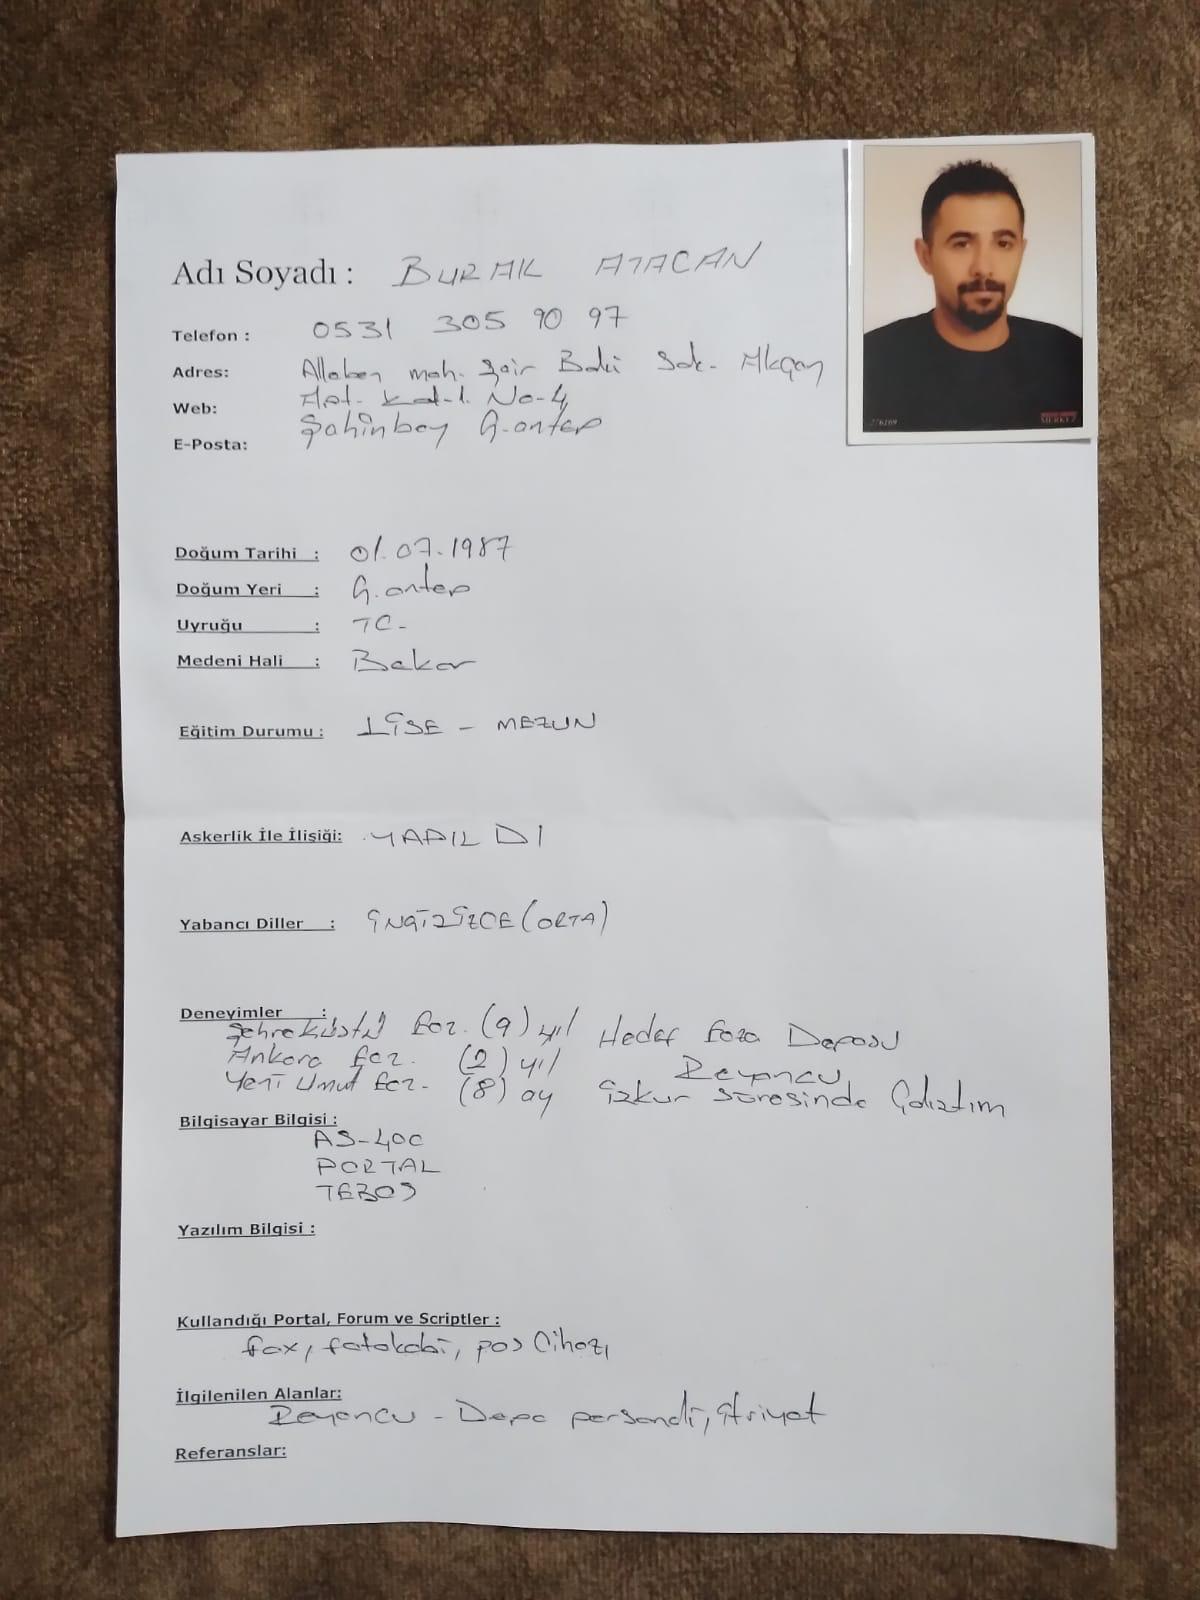 Adı Soyadı : BURAK ATACAN
Telefon : 0531 305 90 97
Adres: Alleben mah. Şair Baki Sok. Akçay
Web: Apt. kat-1. No-4
Şahinbey G.antep
E-Posta:
Doğum Tarihi : 01.07.1987
Doğum Yeri : G.antep
Uyruğu : TC-
Medeni Hali : Bekar
Eğitim Durumu : LİSE - MEZUN
Askerlik İle İlişiği: YAPILDI
Yabancı Diller : İNGİLİZCE (ORTA)
Deneyimler :
Şehreküstü Ecz. (9) yıl Hedef Ecza Deposu
Ankara Ecz. (2) yıl Reyoncu
Yeni Umut Ecz. (8) ay işkur süresinde Çalıştım
Bilgisayar Bilgisi :
AS-400
PORTAL
TEBOS
Yazılım Bilgisi :
Kullandığı Portal, Forum ve Scriptler :
fax, fotokobi, pos Cihazı
İlgilenilen Alanlar:
Reyoncu - Depo personeli, ıtriyat
Referanslar: